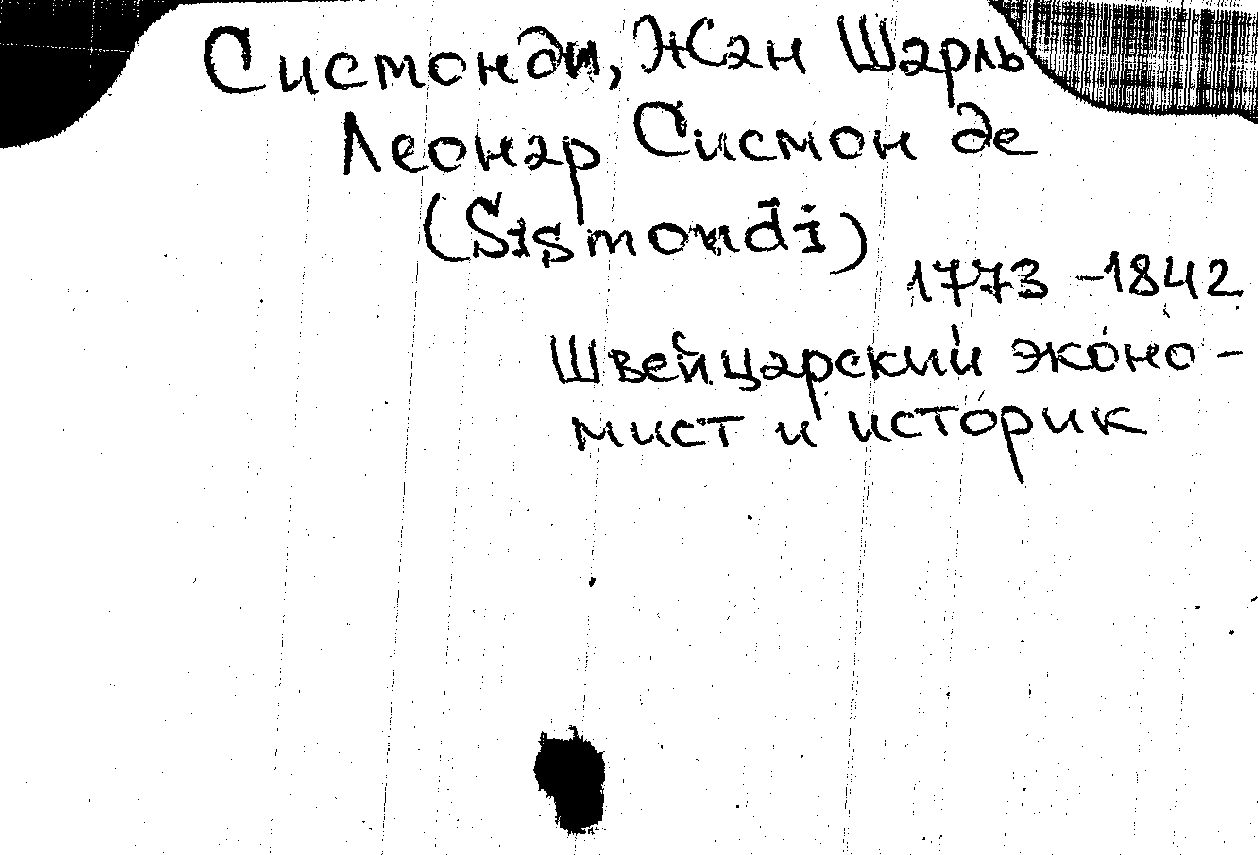 Сисмонди, Жан Шарль
Леонар Сисмон де
(Sismondi)
1773 - 1842
Швейцарский эконо-
мист и историк